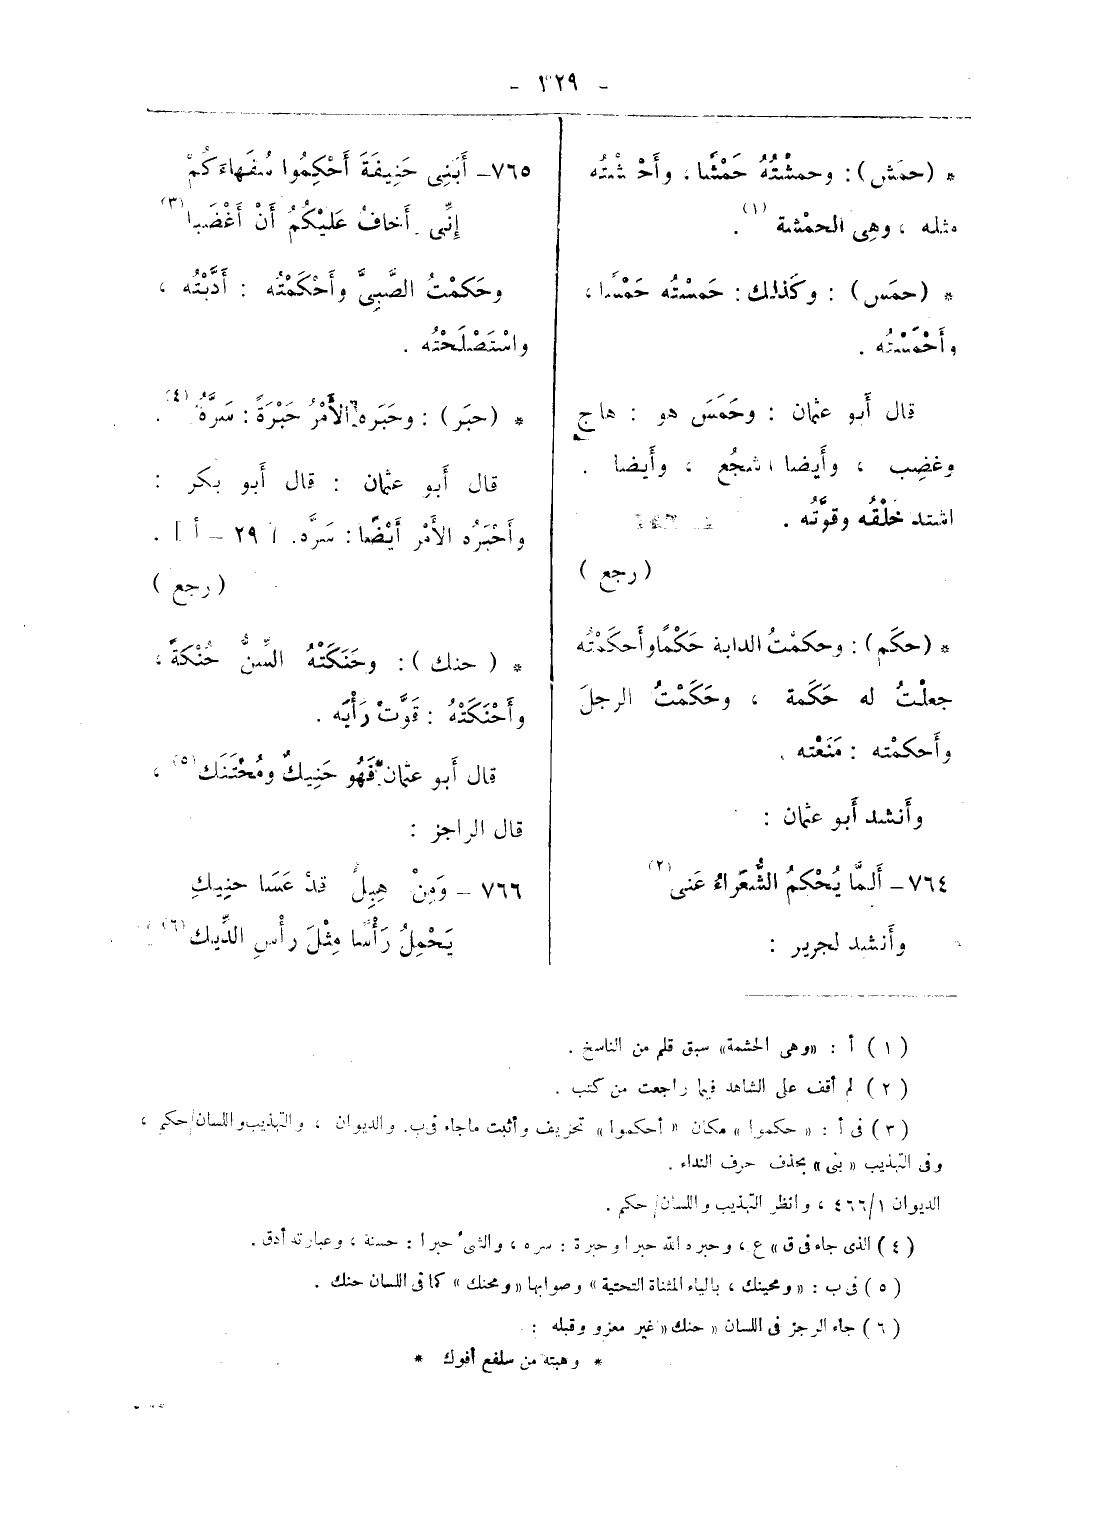 - ٣٢٩ -
* (حمَش): وحمشْتُهُ حَمْشًا، وأَحْمَشْتُه
مثله ، وهِى الحمْشة (١) .
* (حمَس) : وكَذلك: حَمسْتُه حَمْسًا،
وأَحْمَسْتُه .
قال أَبو عثمان : وحَمَسَ هو : هاج
وغضِب ، وأَيضا اشجُع ، وأَيضا .
اشتد خَلْقُه وقوَّتُه .
( رجع )
* (حكَم): وحكمْتُ الدابة حَكْمًا وأَحكَمْتُه
جعلْتُ له حَكَمة ، وحَكَمْتُ الرجلَ
وأَحكمْته : مَنَعْته .
وأَنشد أَبو عثمان :
٧٦٤- أَلمَّا يُحْكمُ الشُّعَراءُ عَنى (٢)
وأَنشد لجرير :
٧٦٥- أَبَنِى حَنِيفَةَ أَحْكِمُوا سُفَهاءَكُمْ
إِنِّى أَخافُ عَلَيْكُمُ أَنْ أَغْضَبا (٣)
وحَكَمْتُ الصَّبِىَّ وأَحْكَمْتُه : أَدَّبْتُه ،
واسْتَصْلَحْتُه .
* (حبَر) : وحَبَره الأَمْرُ حَبْرَةً: سَرَّهُ (٤).
قال أَبو عثمان : قال أَبو بكر :
وأَحْبَرُه الأَمْر أَيْضًا: سَرَّه. [ ٢٩ - أ ] .
( رجع )
* ( حنك ): وحَنَكَتْهُ السِّنُّ حُنْكةً،
وأَحْنَكَتْهُ : قَوَّتْ رَأْيَه .
قال أَبو عثمان: فَهُو حَنِيكٌ ومُحْتَنَك (٥) ،
قال الراجز :
٧٦٦ - وَمِنْ هِبِلٍّ قدْ عَسَا حنِيكِ
يَحْمِلُ رَأْسًا مِثْلَ رأْسِ الدِّيك (٦)
(١) أ : «وهى الحشمة» سبق قلم من الناسخ .
(٢) لم أقف على الشاهد فيما راجعت من كتب .
(٣) فى أ : « حكموا » مكان « أحكموا » تحريف وأثبت ماجاء فى ب. والديوان ، والتهذيب واللسان/حكم ،
وفى التهذيب « بنى » بحذف حرف النداء .
الديوان ٤٦٦/١ ، وانظر التهذيب واللسان/ حكم .
(٤) الذى جاء فى ق » ع ، وحبره الله حبرا وحبرة : سره ، والشىء حبرا : حسنة ، وعبارته أدق .
(٥) فى ب : « ومحينك ، بالياء المثناة التحتية » وصوابها « ومحنك » كما فى اللسان حنك .
(٦) جاء الرجز فى اللسان « حنك » غير معزو وقبله :
* وهبته من سلفع أفوك *